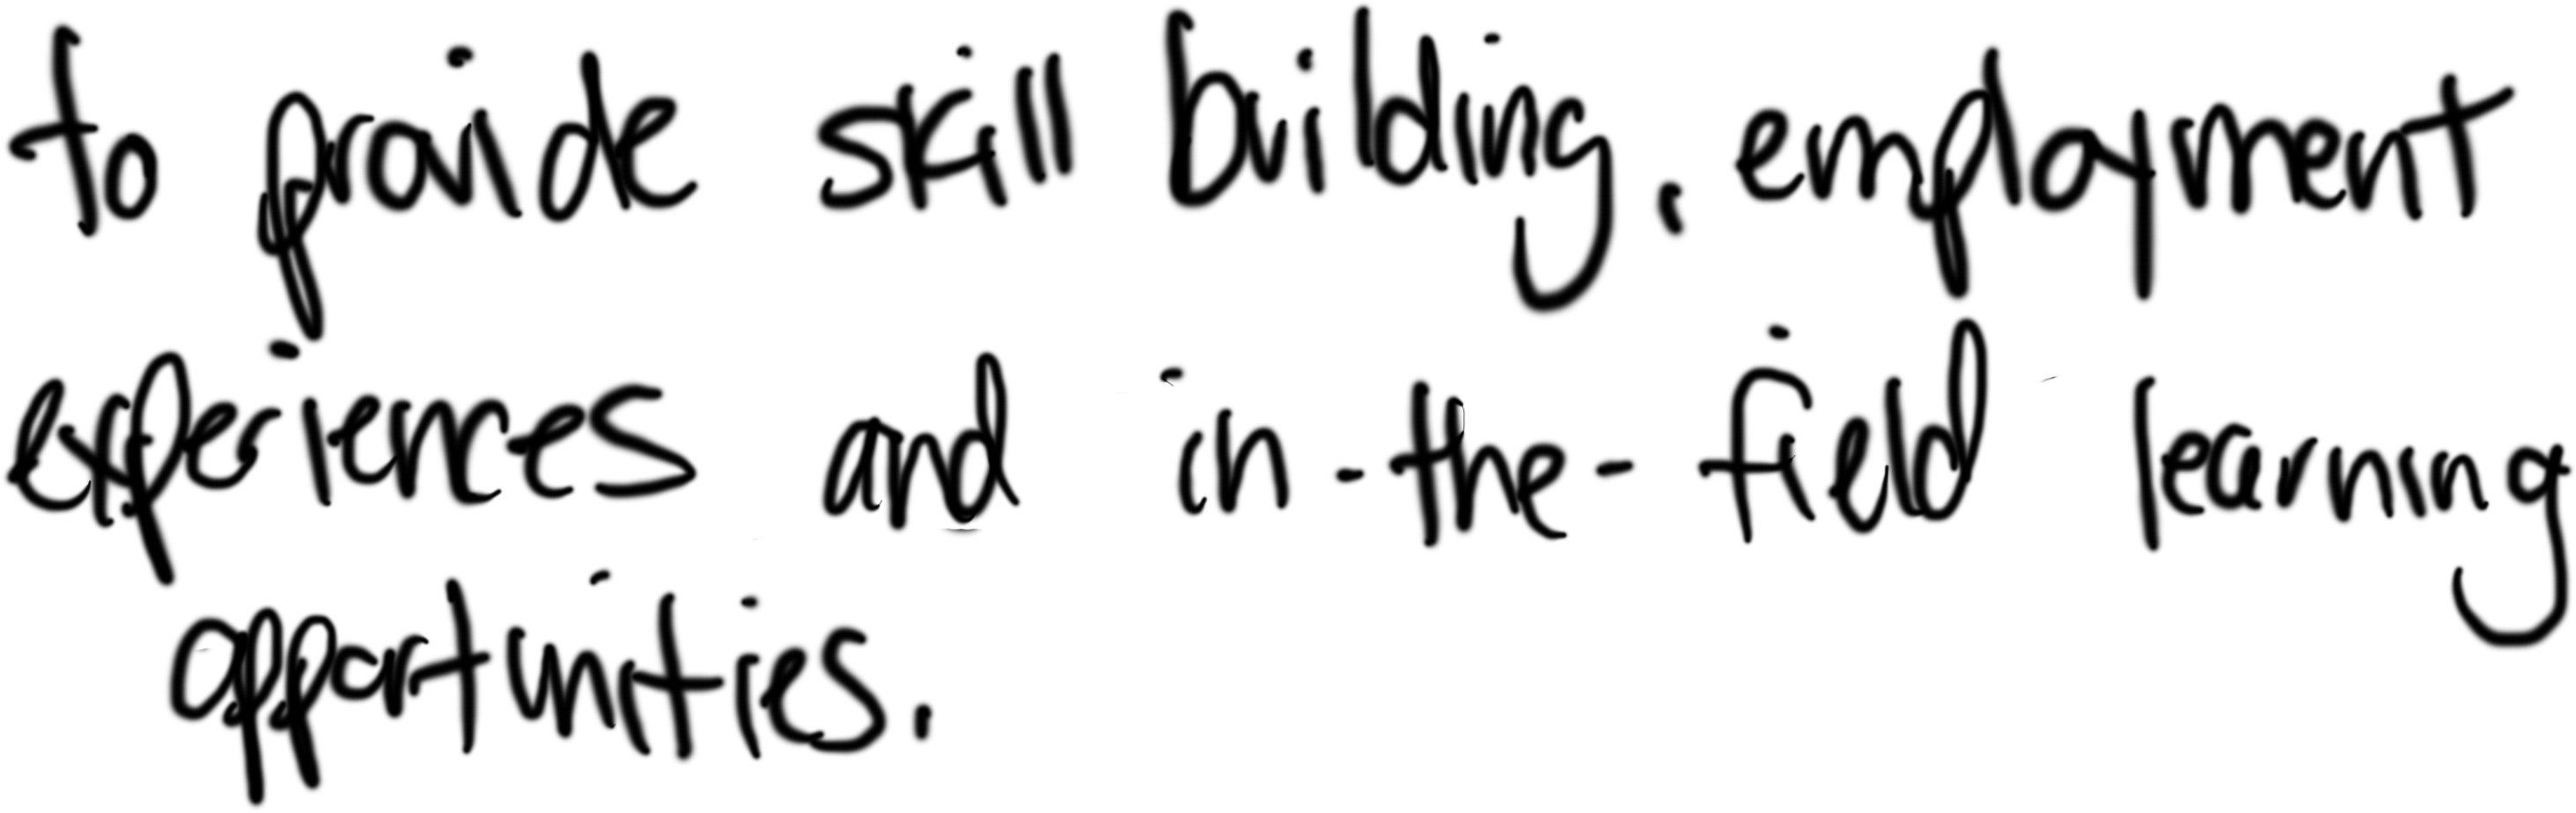 to provide skill building, employment
experiences and in-the-field learning
opportunities.